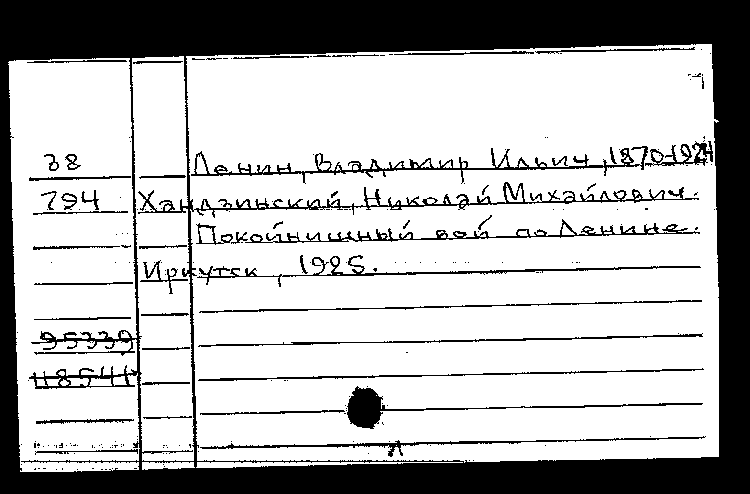 38 Ленин, Владимир Ильич, 1870-1924
794 Хандзинский, Николай Михайлович.
Покойнишный вой по Ленине.
Иркутск, 1925.
95339
118541
Л